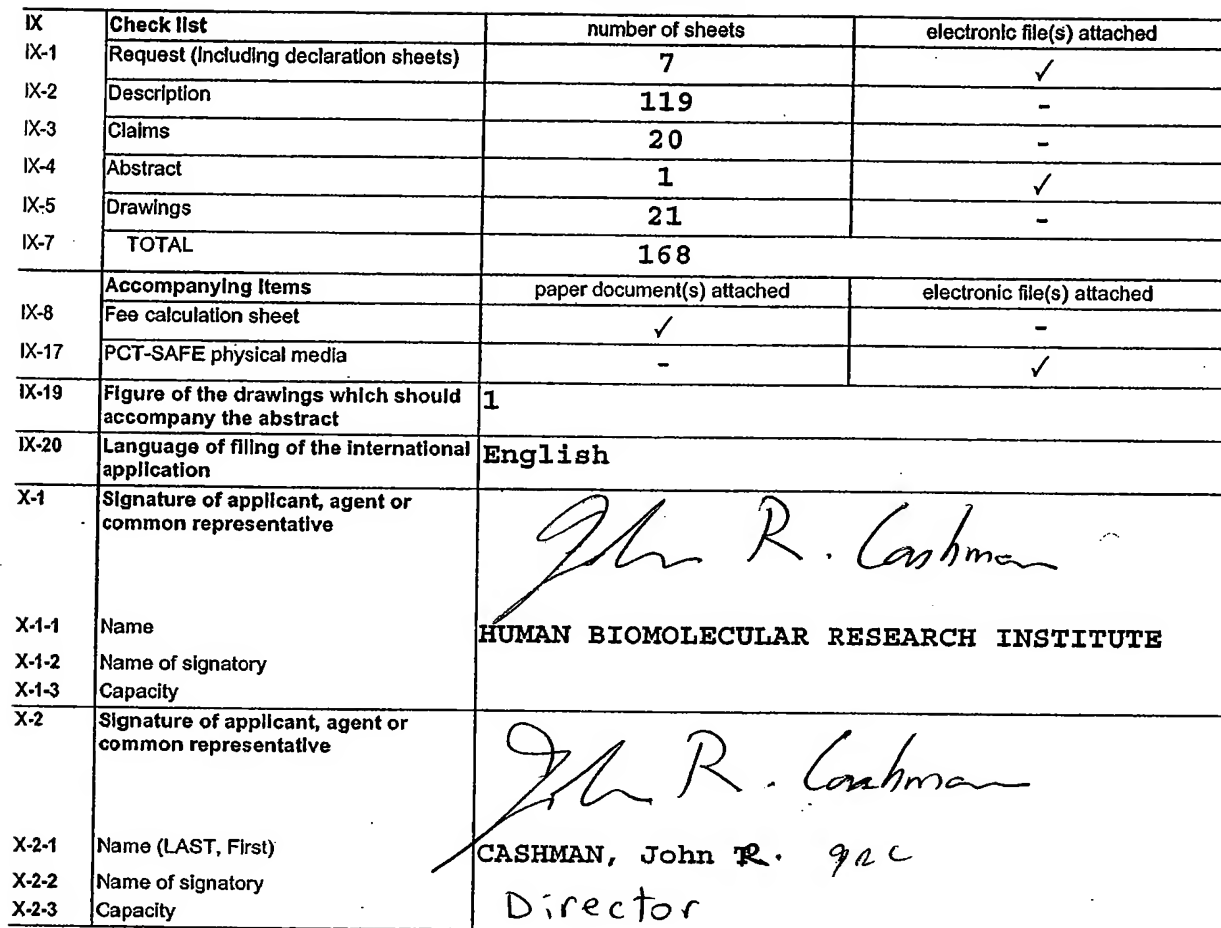 IX Check list number of sheets electronic file(s) attached
IX-1 Request (including declaration sheets) 7 ✓
IX-2 Description 119 -
IX-3 Claims 20 -
IX-4 Abstract 1 ✓
IX-5 Drawings 21 -
IX-7 TOTAL 168
Accompanying Items paper document(s) attached electronic file(s) attached
IX-8 Fee calculation sheet ✓ -
IX-17 PCT-SAFE physical media - ✓
IX-19 Figure of the drawings which should 1
accompany the abstract
IX-20 Language of filing of the international English
application
X-1 Signature of applicant, agent or
common representative
John R. Cashman
X-1-1 Name HUMAN BIOMOLECULAR RESEARCH INSTITUTE
X-1-2 Name of signatory
X-1-3 Capacity
X-2 Signature of applicant, agent or
common representative
John R. Cashman
X-2-1 Name (LAST, First) CASHMAN, John R.
X-2-2 Name of signatory
X-2-3 Capacity Director